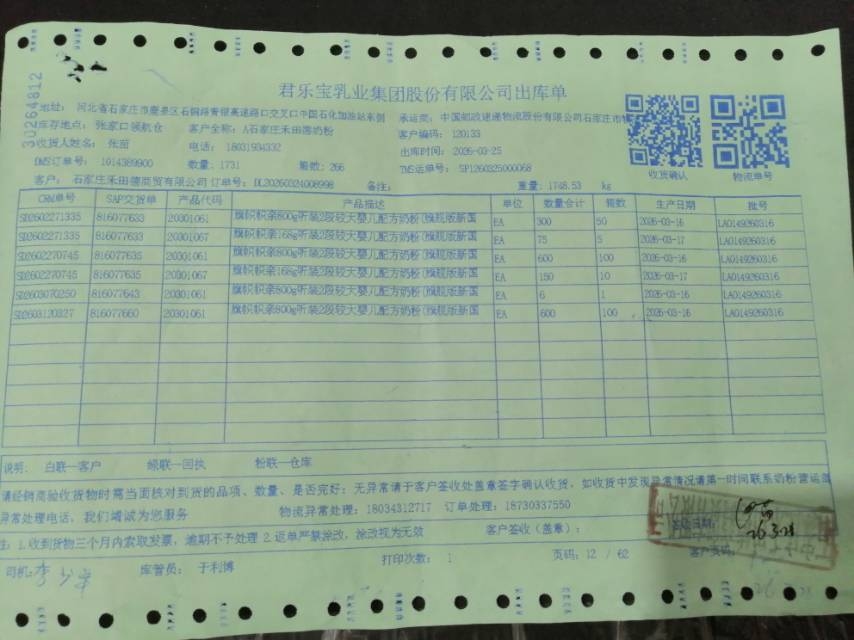 30264812
君乐宝乳业集团股份有限公司出库单
地址： 河北省石家庄市鹿泉区石铜路青银高速路口交叉口中国石化加油站东侧 承运商：中国邮政速递物流股份有限公司石家庄市
库存地点：张家口领航仓 客户全称：A石家庄禾田蒂奶粉 客户编码： 120133
收货人姓名： 张苗 电话： 18031934332 出库时间：2026-03-25
OMS订单号： 1014389900 数量：1731 箱数：266 TMS运单号： SP1260325000068
收货确认 物流单号
客户： 石家庄禾田蒂商贸有限公司 订单号：DL20260324008998 备注： 重量：1748.53 kg
CRM单号 SAP交货单 产品代码 产品描述 单位 数量合计 箱数 生产日期 批号
SD2602271335 816077633 20301061 旗帜帜亲800g听装2段较大婴儿配方奶粉(旗舰版新国 EA 300 50 2026-03-16 LA0149260316
SD2602271335 816077633 20301067 旗帜帜亲168g听装2段较大婴儿配方奶粉(旗舰版新国 EA 75 5 2026-03-17 LA0149260316
SD2602270745 816077635 20301061 旗帜帜亲800g听装2段较大婴儿配方奶粉(旗舰版新国 EA 600 100 2026-03-16 LA0149260316
SD2602270745 816077635 20301067 旗帜帜亲168g听装2段较大婴儿配方奶粉(旗舰版新国 EA 150 10 2026-03-17 LA0149260316
SD2603070250 816077643 20301061 旗帜帜亲800g听装2段较大婴儿配方奶粉(旗舰版新国 EA 6 1 2026-03-16 LA0149260316
SD2603120327 816077660 20301061 旗帜帜亲800g听装2段较大婴儿配方奶粉(旗舰版新国 EA 600 100 2026-03-16 LA0149260316
说明： 白联—客户 绿联—回执 粉联—仓库
请经销商验收货物时需当面核对到货的品项、数量、是否完好；无异常请于客户签收处盖章签字确认收货，如收货中发现异常情况请第一时间联系奶粉营运部
异常处理电话，我们竭诚为您服务 物流异常处理：18034312717 订单处理：18730337550
注：1.收到货物三个月内索取发票，逾期不予处理 2.返单严禁涂改，涂改视为无效 客户签收（盖章）： 签收日期： 26.3.28
司机： 库管员： 于利博 打印次数： 1 页码：12 / 62 客户页码：
26.3.28